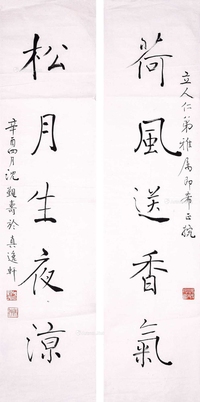 立人仁弟雅属即希正腕
荷風送香氣
松月生夜涼
辛酉四月沈覲壽於真逸軒